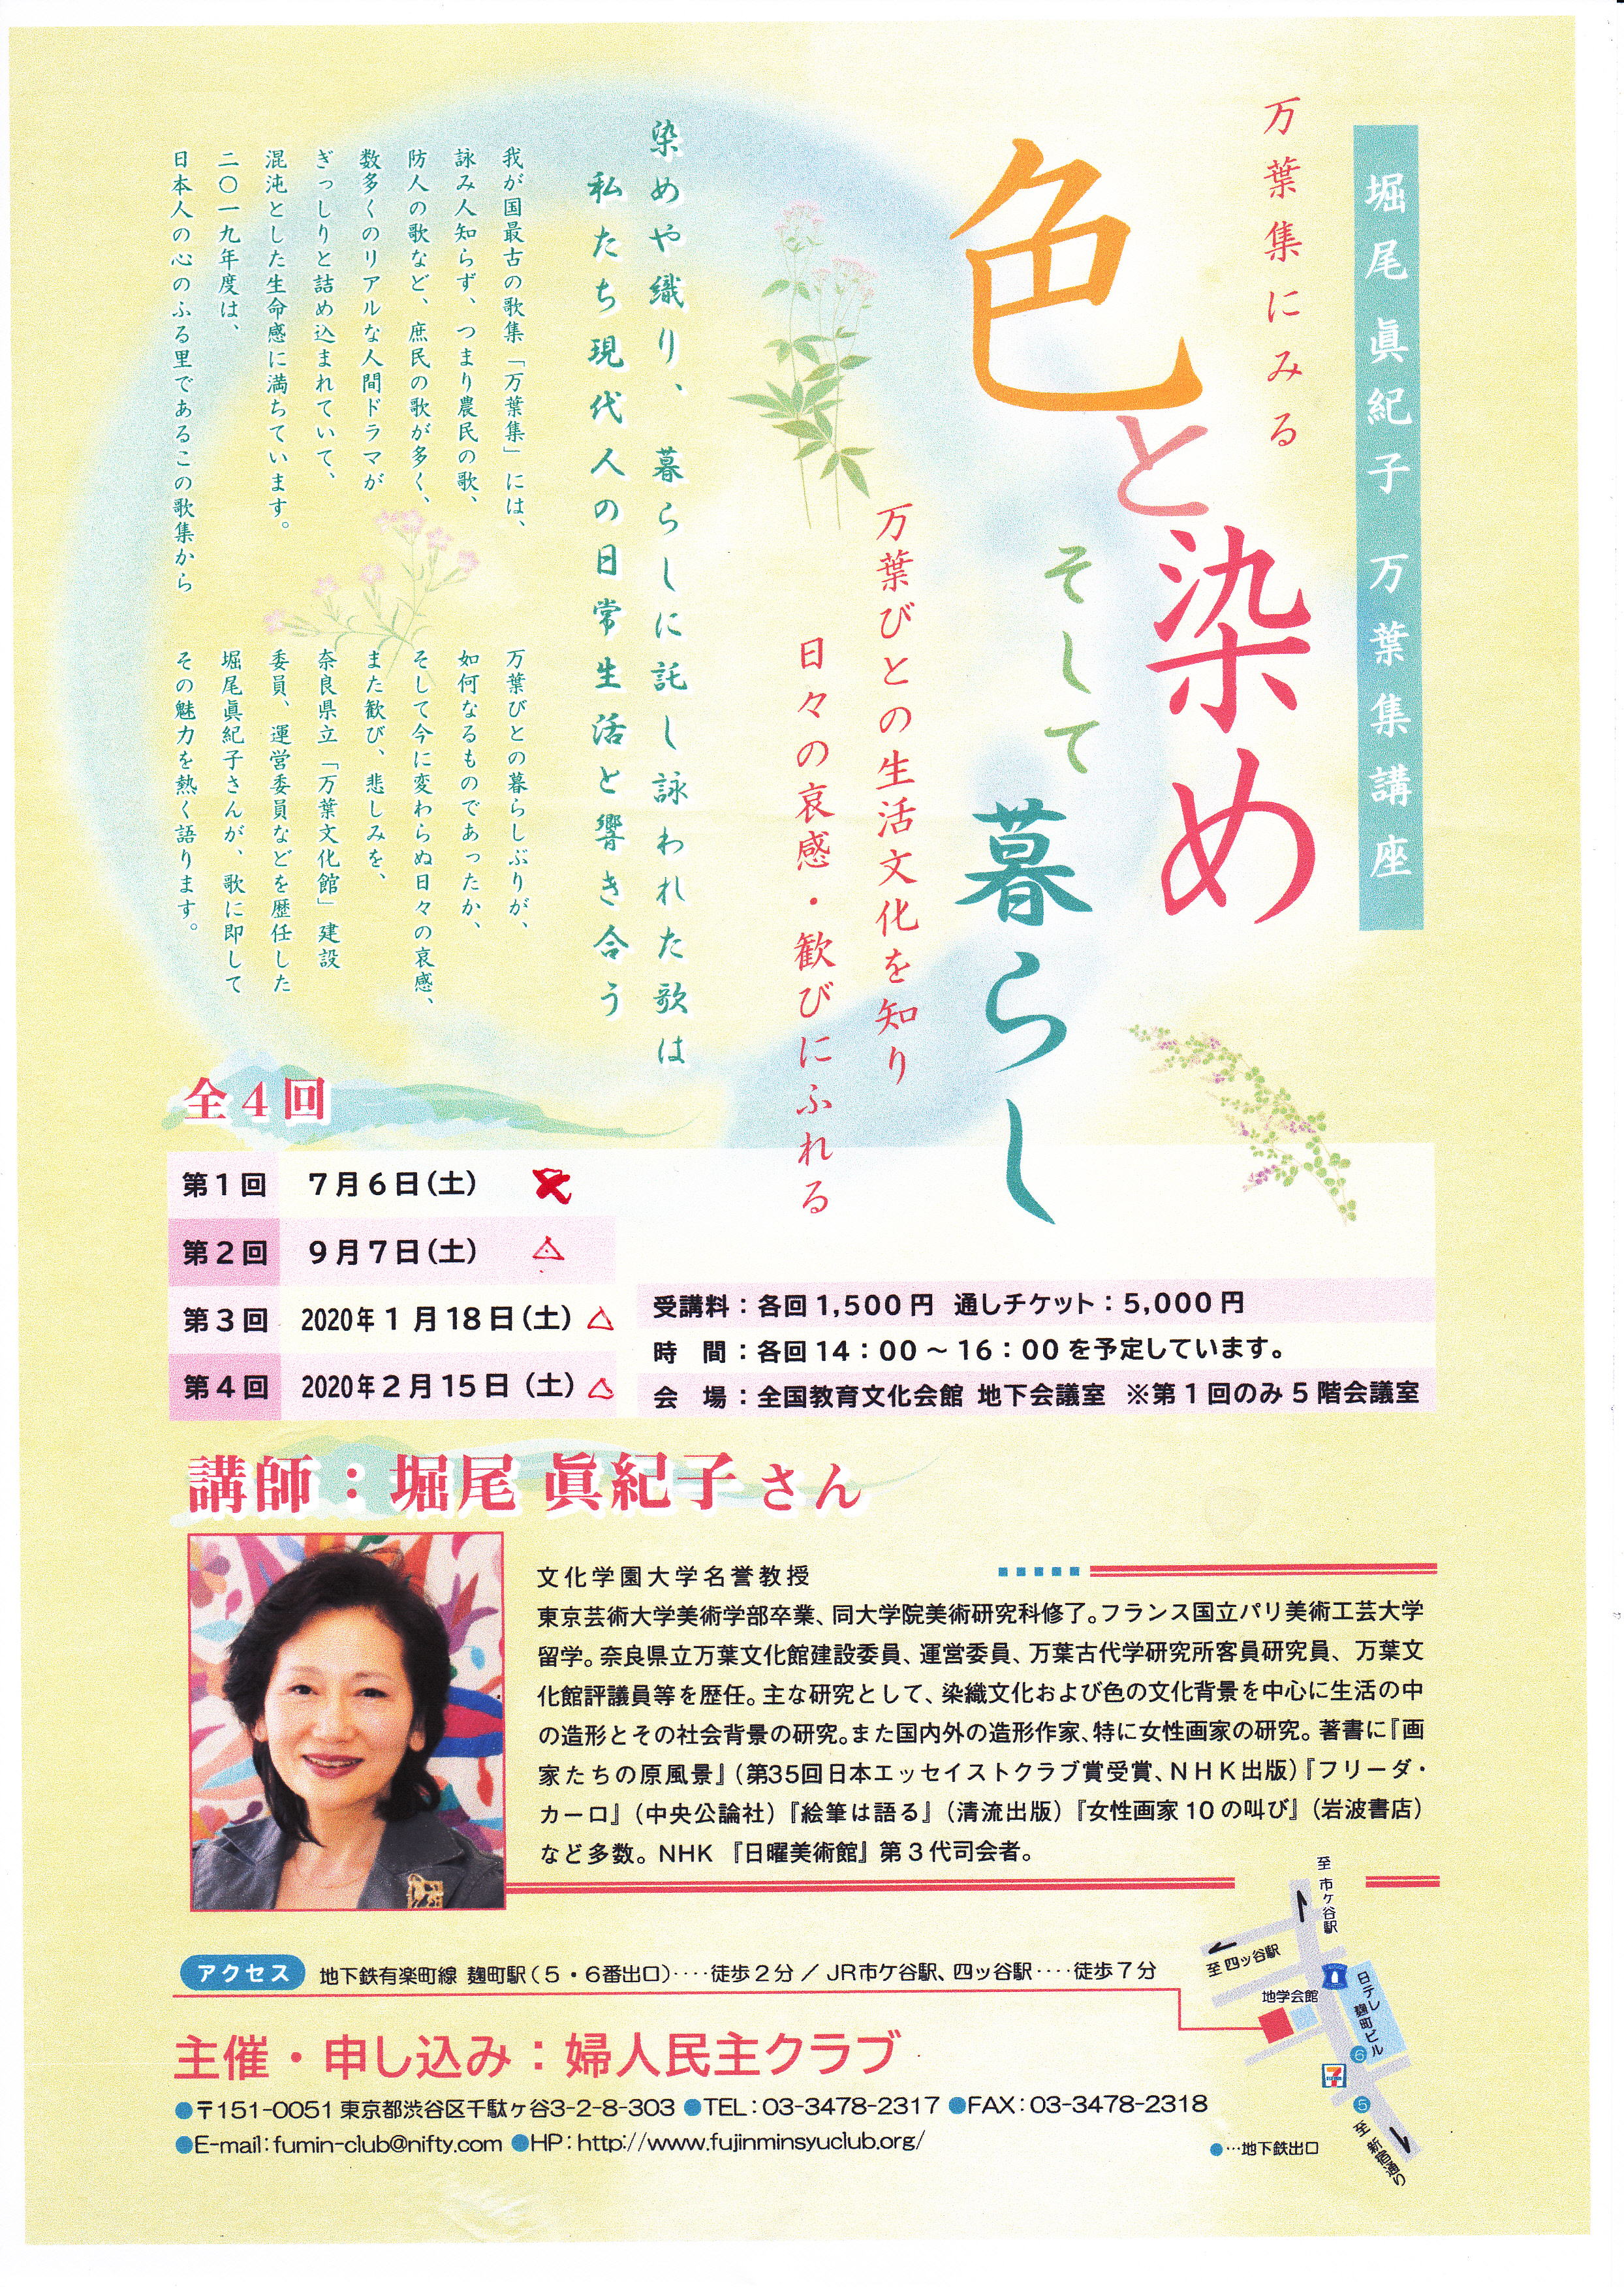 堀尾眞紀子 万葉集講座
万葉集にみる
色と染め
そして
暮らし
万葉びとの生活文化を知り
日々の哀感・歓びにふれる
染めや織り、暮らしに託し詠われた歌は
私たち現代人の日常生活と響き合う
我が国最古の歌集「万葉集」には、
詠み人知らず、つまり農民の歌、
防人の歌など、庶民の歌が多く、
数多くのリアルな人間ドラマが
ぎっしりと詰め込まれていて、
混沌とした生命感に満ちています。
二〇一九年度は、
日本人の心のふる里であるこの歌集から
万葉びとの暮らしぶりが、
如何なるものであったか、
そして今に変わらぬ日々の哀感、
また歓び、悲しみを、
奈良県立「万葉文化館」建設
委員、運営委員などを歴任した
堀尾眞紀子さんが、歌に即して
その魅力を熱く語ります。
全4回
第1回 7月6日(土)
第2回 9月7日(土)
第3回 2020年1月18日(土)
第4回 2020年2月15日(土)
受講料：各回1,500円 通しチケット：5,000円
時 間：各回14：00～16：00を予定しています。
会 場：全国教育文化会館 地下会議室 ※第1回のみ5階会議室
講師：堀尾 眞紀子さん
文化学園大学名誉教授
東京芸術大学美術学部卒業、同大学院美術研究科修了。フランス国立パリ美術工芸大学
留学。奈良県立万葉文化館建設委員、運営委員、万葉古代学研究所客員研究員、万葉文
化館評議員等を歴任。主な研究として、染織文化および色の文化背景を中心に生活の中
の造形とその社会背景の研究。また国内外の造形作家、特に女性画家の研究。著書に『画
家たちの原風景』（第35回日本エッセイストクラブ賞受賞、NHK出版）『フリーダ・
カーロ』（中央公論社）『絵筆は語る』（清流出版）『女性画家10の叫び』（岩波書店）
など多数。NHK『日曜美術館』第3代司会者。
アクセス 地下鉄有楽町線 麹町駅（5・6番出口）‥‥徒歩2分 ／ JR市ケ谷駅、四ッ谷駅‥‥徒歩7分
至 市ケ谷駅
至 四ッ谷駅
地学会館
日テレ 麹町ビル
6
7
5
至 新宿通り
●…地下鉄出口
主催・申し込み：婦人民主クラブ
●〒151-0051 東京都渋谷区千駄ヶ谷3-2-8-303 ●TEL：03-3478-2317 ●FAX：03-3478-2318
●E-mail：fumin-club@nifty.com ●HP：http://www.fujinminsyuclub.org/